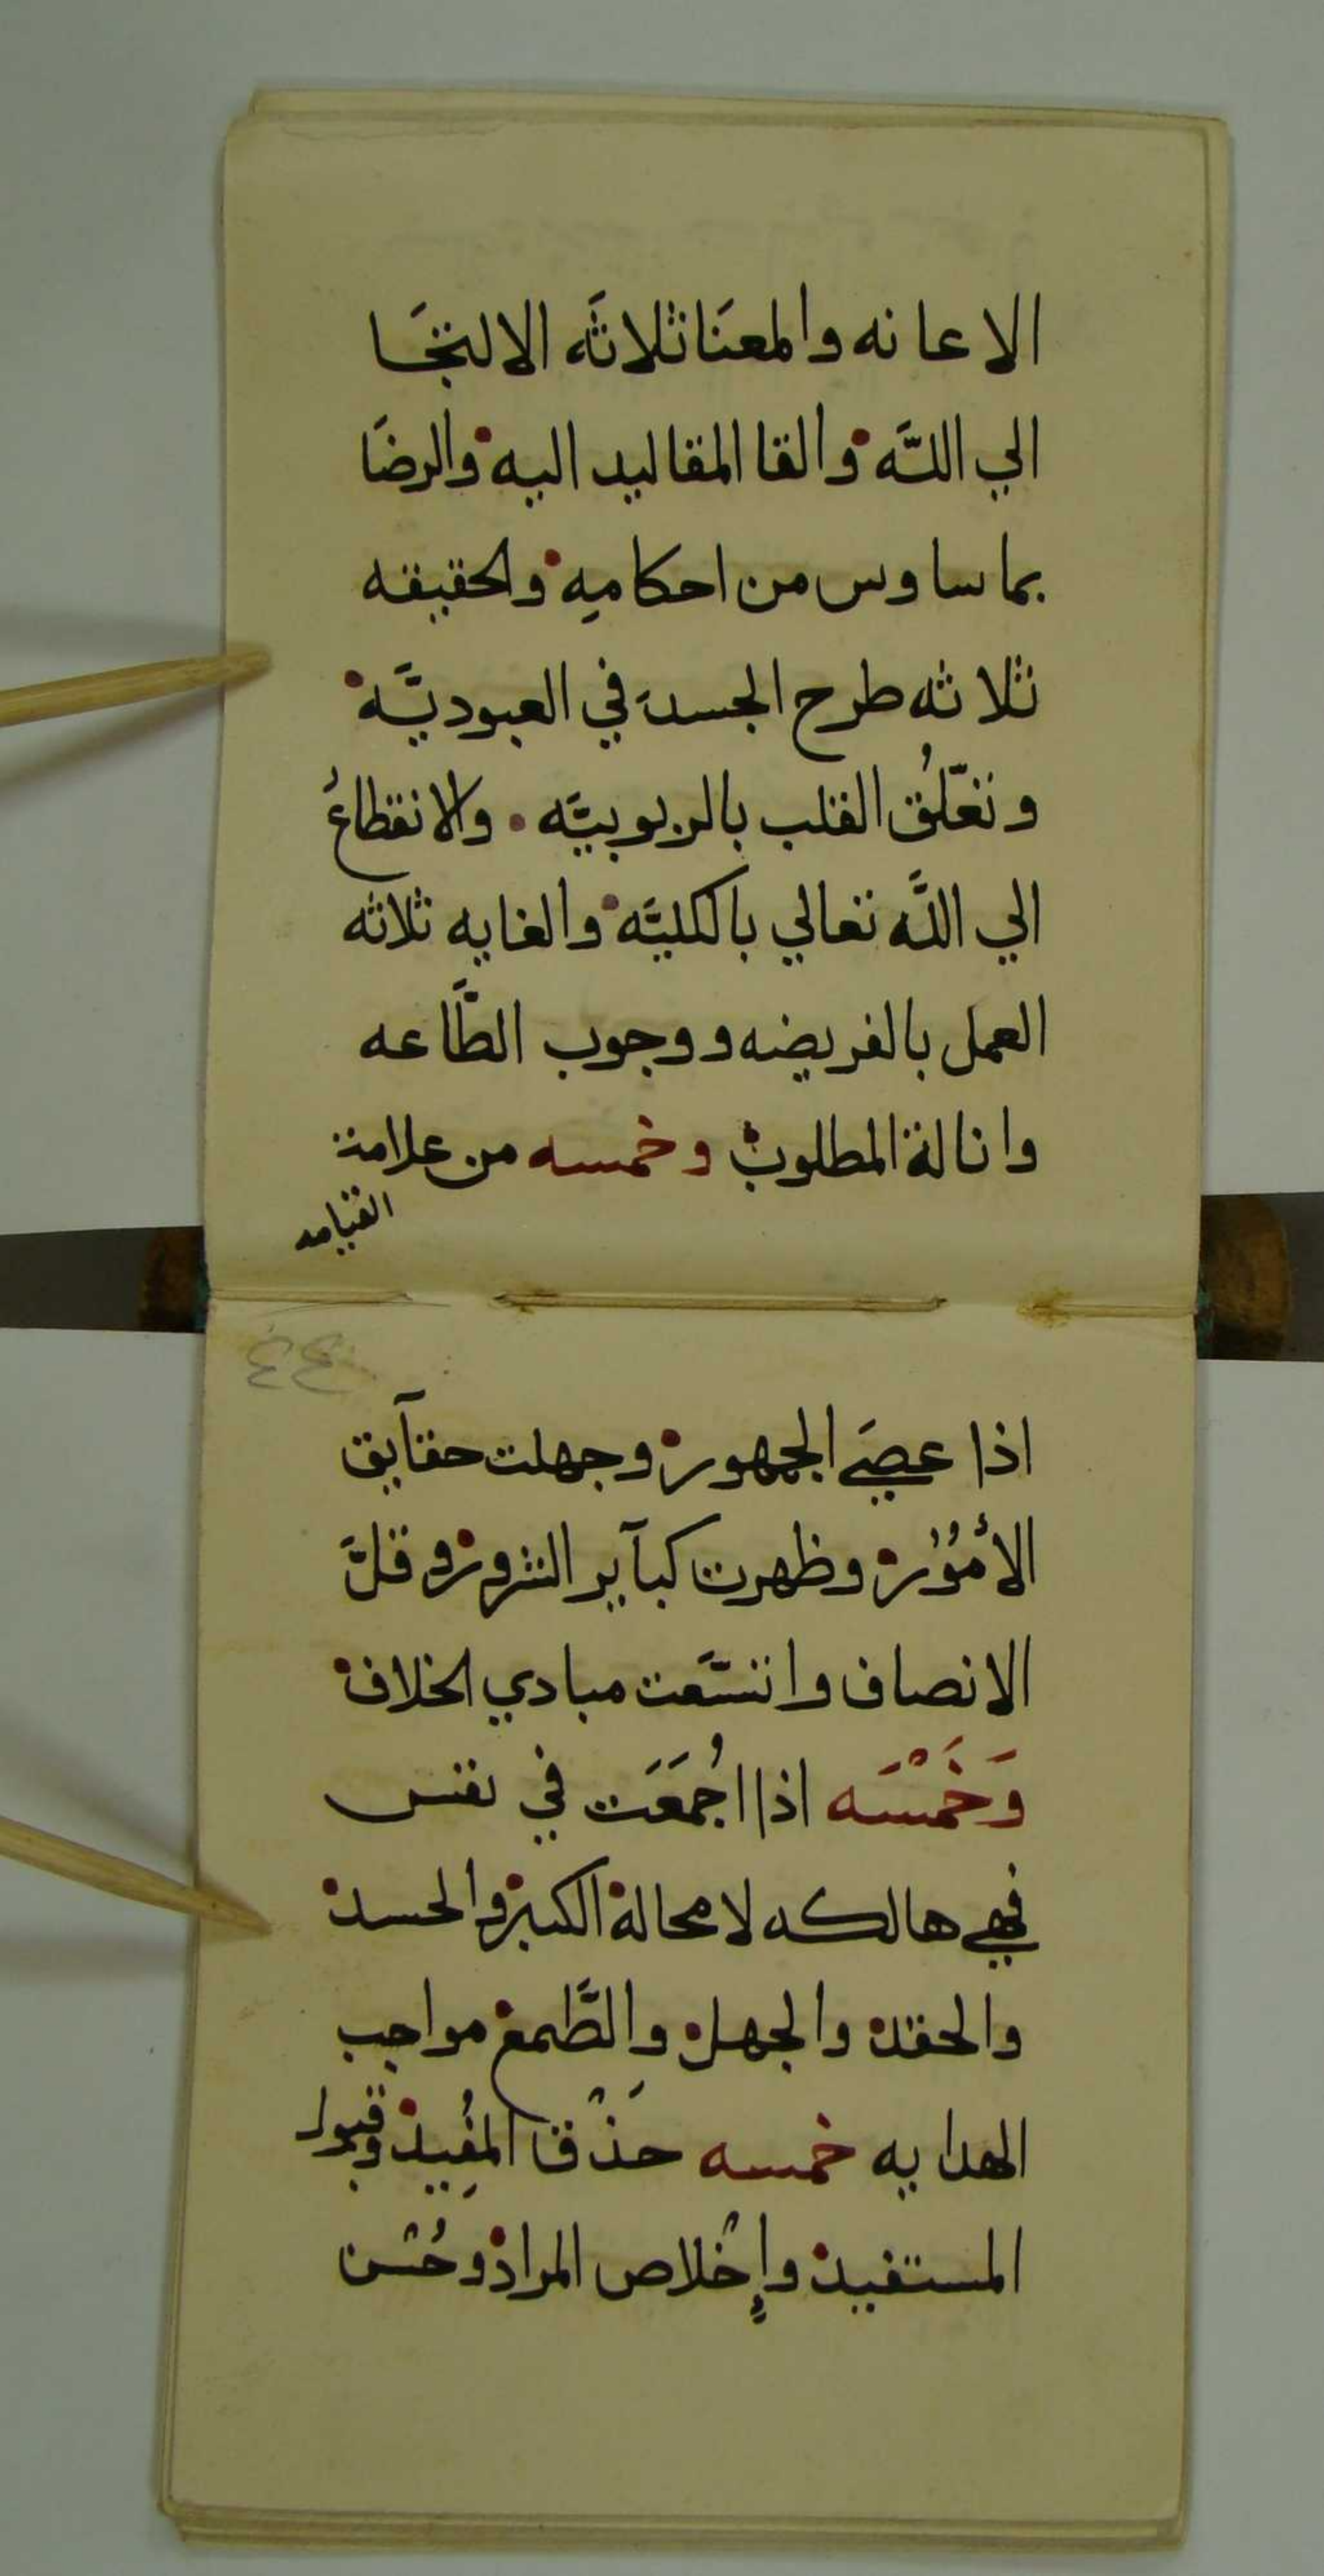 الاعانه والمعنا ثلاثه الالتجا
الي الله والقا المقاليد اليه والرضا
بما سا وس من احكامه والحقيقه
ثلاثه طرح الجسد في العبوديه
وتعلق القلب بالربوبيه والانقطاع
الي الله تعالي بالكليه والغايه ثلاثه
العمل بالفريضه ووجوب الطاعه
وانالة المطلوب وخمسه من علامة
القيامه
٤٤
اذا عصي الجمهور وجهلت حقآيق
الأمور وظهرت كبآير الشرور وقل
الانصاف واتسعت مبادي الخلاف
وخمسه اذا اجمعت في نفس
فهي هالكه لا محالة الكبر والحسد
والحقد والجهل والطمع مواجب
الهدايه خمسه حذق المفيد وقبول
المستفيد وإخلاص المراد وحسن